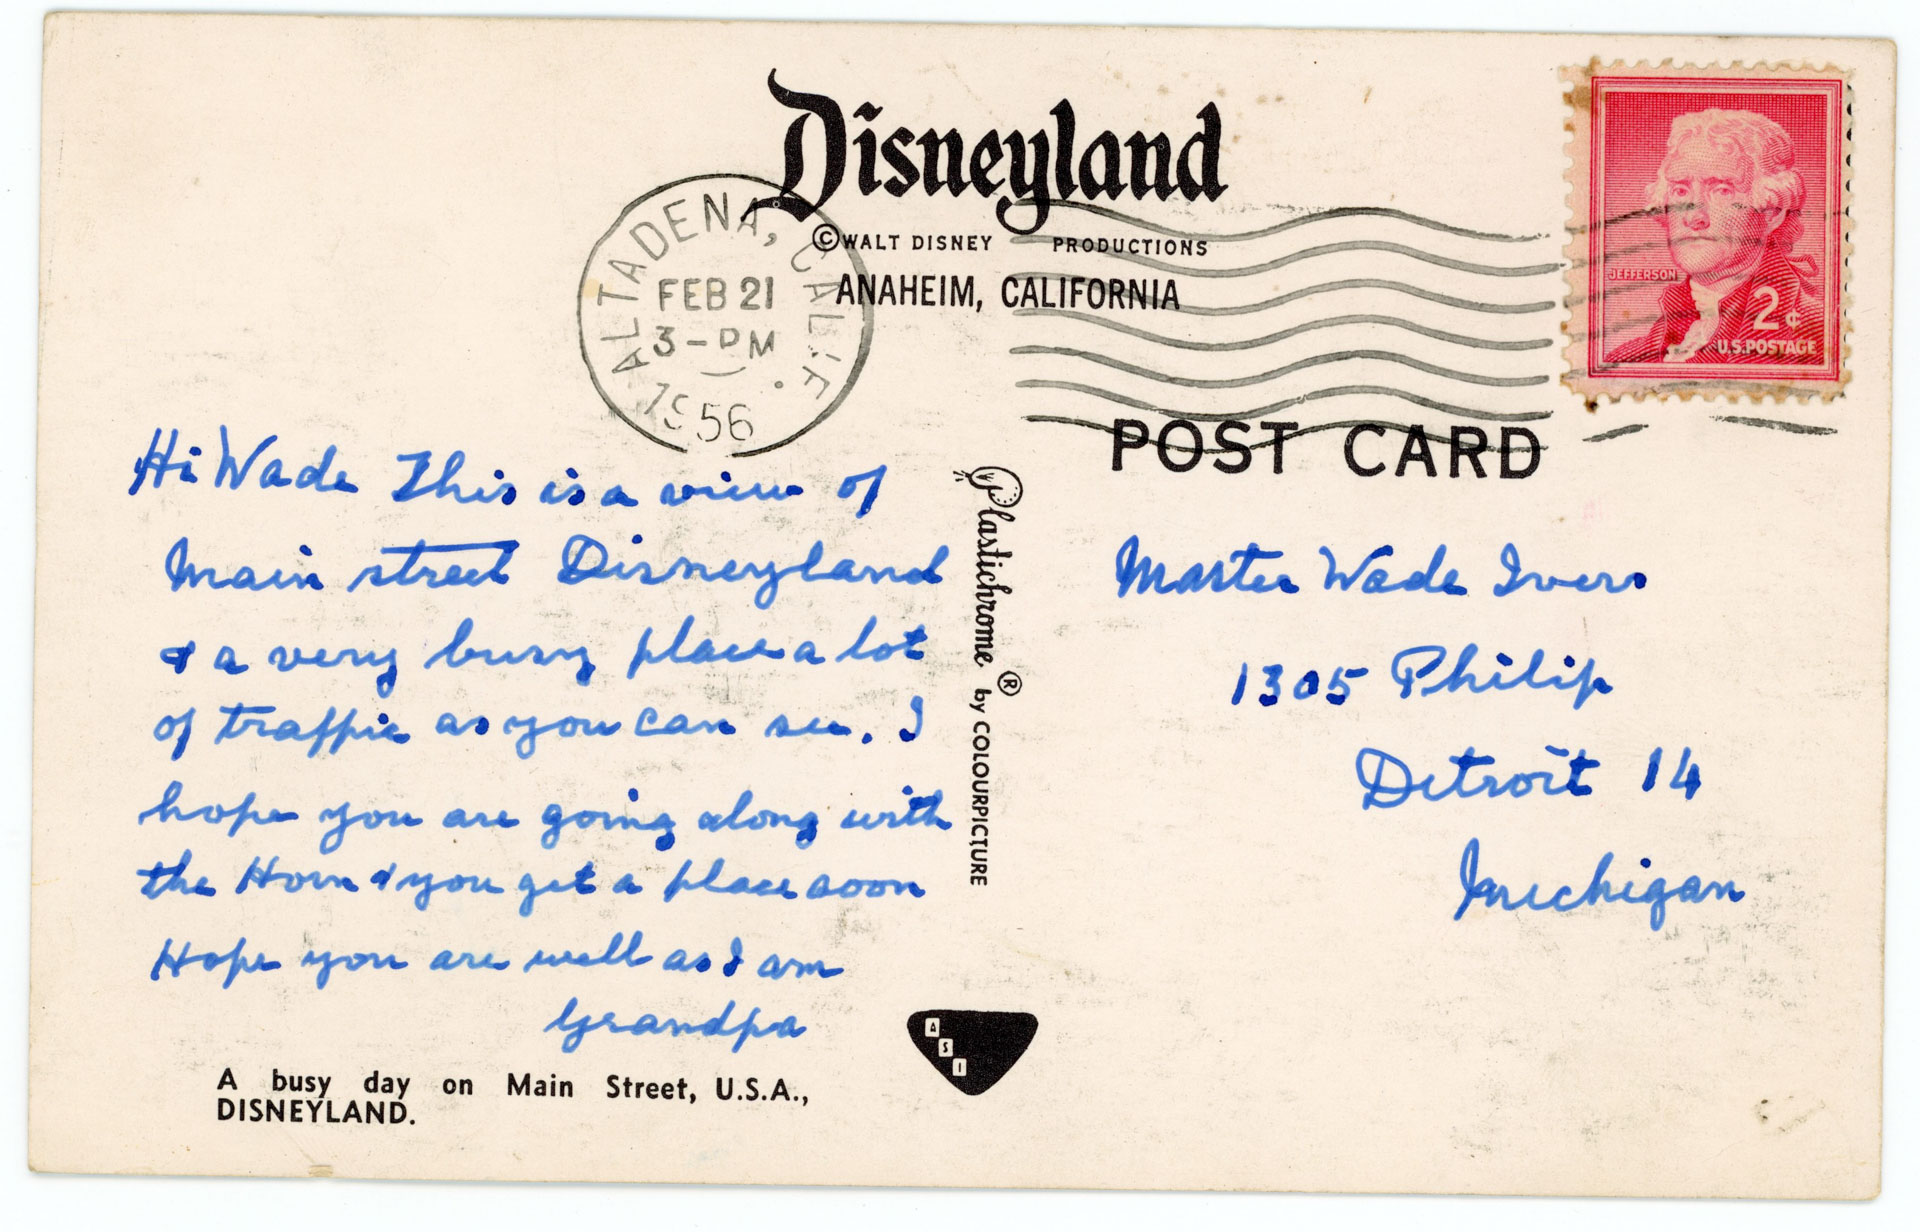 Disneyland
©WALT DISNEY PRODUCTIONS
ANAHEIM, CALIFORNIA
ALTADENA, CALIF.
FEB 21
3-PM
1956
JEFFERSON
2¢
U.S. POSTAGE
POST CARD
Hi Wade This is a view of
Main street Disneyland
& a very busy place a lot
of traffic as you can see. I
hope you are going along with
the Horn & you get a place soon
Hope you are well as I am
Grandpa
A busy day on Main Street, U.S.A.,
DISNEYLAND.
Plastichrome ® by COLOURPICTURE
A
S
I
Master Wade Ivers
1305 Philip
Detroit 14
Michigan